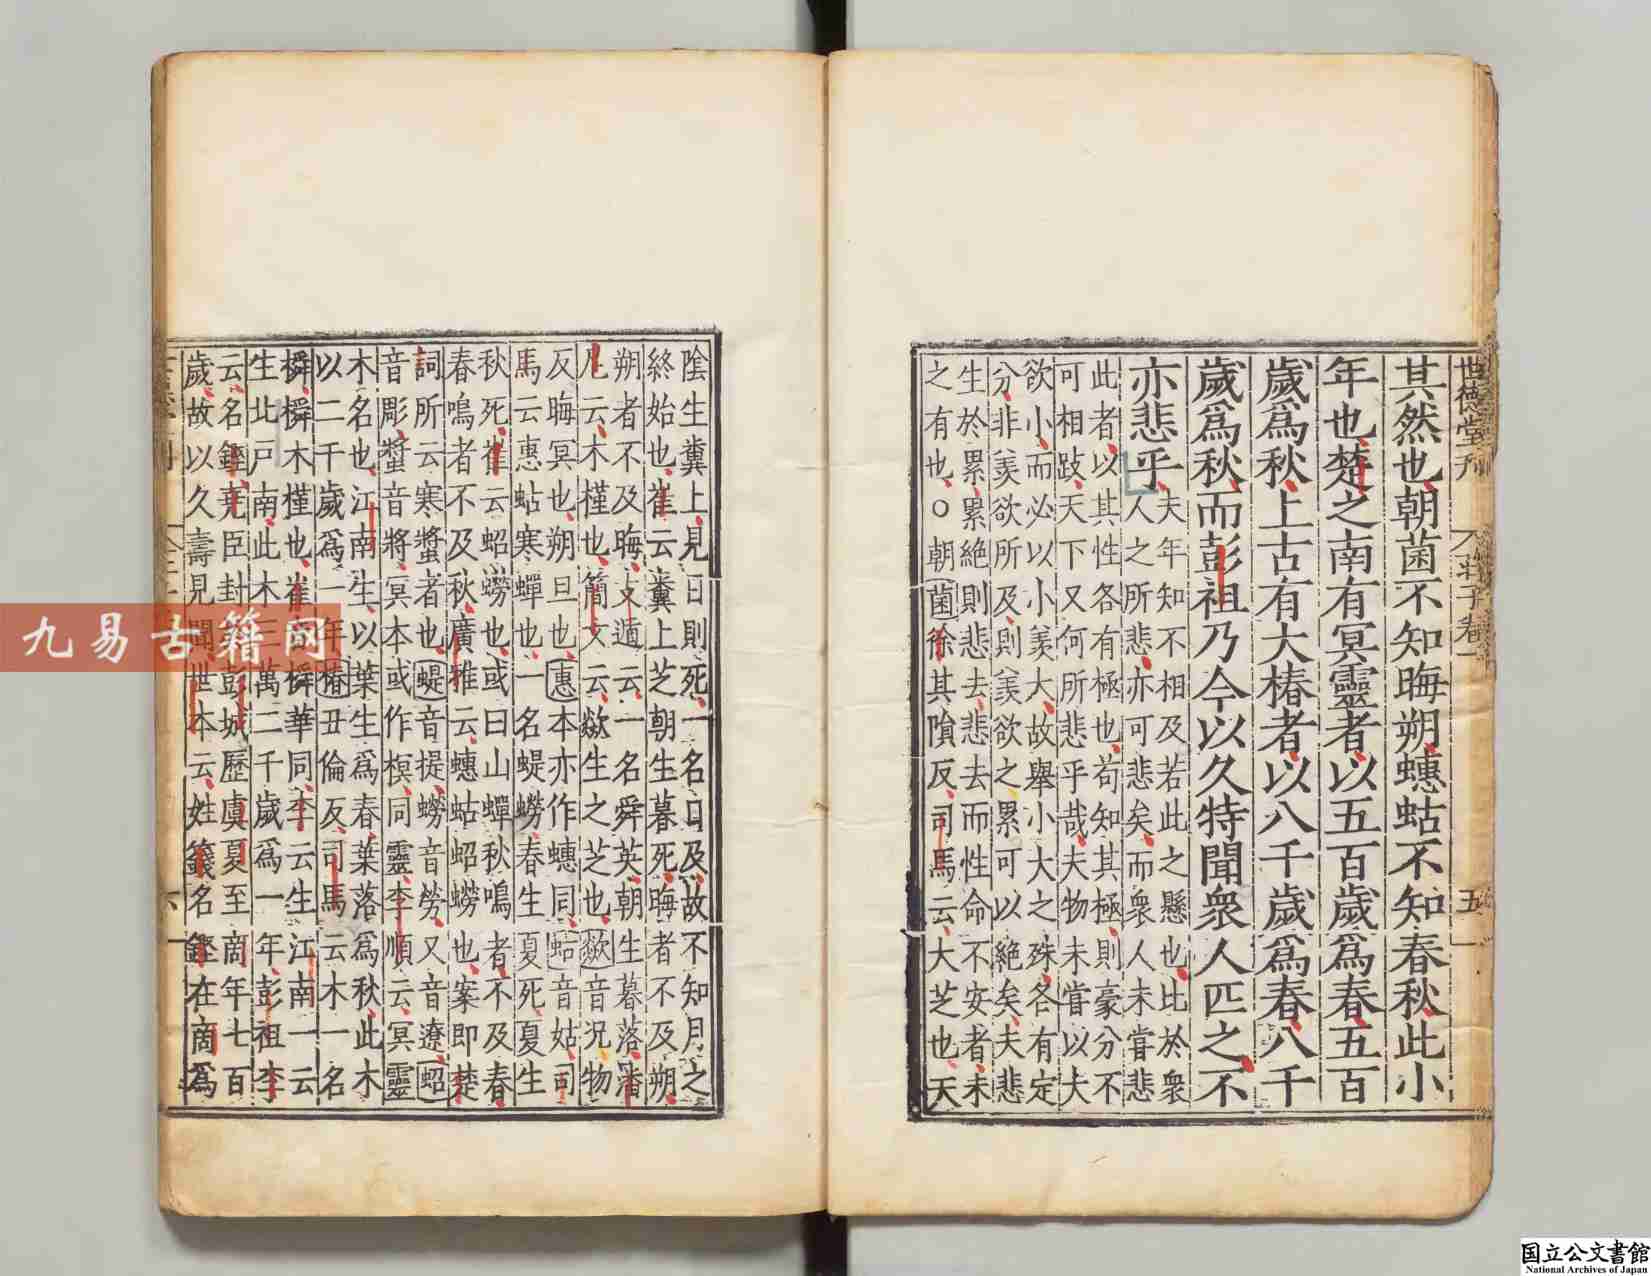 世德堂刊 莊子卷一 五
其然也朝菌不知晦朔蟪蛄不知春秋此小
年也楚之南有冥靈者以五百歲爲春五百
歲爲秋上古有大椿者以八千歲爲春八千
歲爲秋而彭祖乃今以久特聞衆人匹之不
亦悲乎夫年知不相及若此之懸也比於衆
人之所悲亦可悲矣而衆人未嘗悲
此者以其性各有極也苟知其極則豪分不
可相跂天下又何所悲乎哉夫物未嘗以大
欲小而必以小羨大故舉小大之殊各有定
分非羨欲所及則羨欲之累可以絕矣夫悲
生於累累絕則悲去悲去而性命不安者未
之有也○朝菌徐其隕反司馬云大芝也天
陰生糞上見日則死一名日及故不知月之
終始也崔云糞上芝朝生暮死晦者不及朔
朔者不及晦支遁云一名舜英朝生暮落潘
尼云木槿也簡文云歘生之芝也歘音況物
反晦冥也朔旦也惠本亦作蟪同蛄音姑司
馬云惠蛄寒蟬也一名蝭蟧春生夏死夏生
秋死崔云蛁蟧也或曰山蟬秋鳴者不及春
春鳴者不及秋廣雅云蟪蛄蛁蟧也案即楚
詞所云寒螿者也蝭音提蟧音勞又音遼蛁
音彫螿音將冥本或作榠同靈李順云冥靈
木名也江南生以葉生爲春葉落爲秋此木
以二千歲爲一年椿丑倫反司馬云木一名
橓橓木槿也崔音橓華同李云生江南一云
生北戶南此木三萬二千歲爲一年彭祖李
云名鏗堯臣封彭城歷虞夏至商年七百
歲故以久壽見聞世本云姓籛名鏗在商爲
九易古籍网
国立公文書館
National Archives of Japan